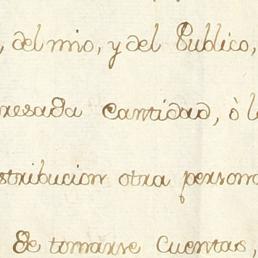 , del mio, y del Publico,
resada cantidad, ò l
stribucion otra persona
de tomarse Cuentas,